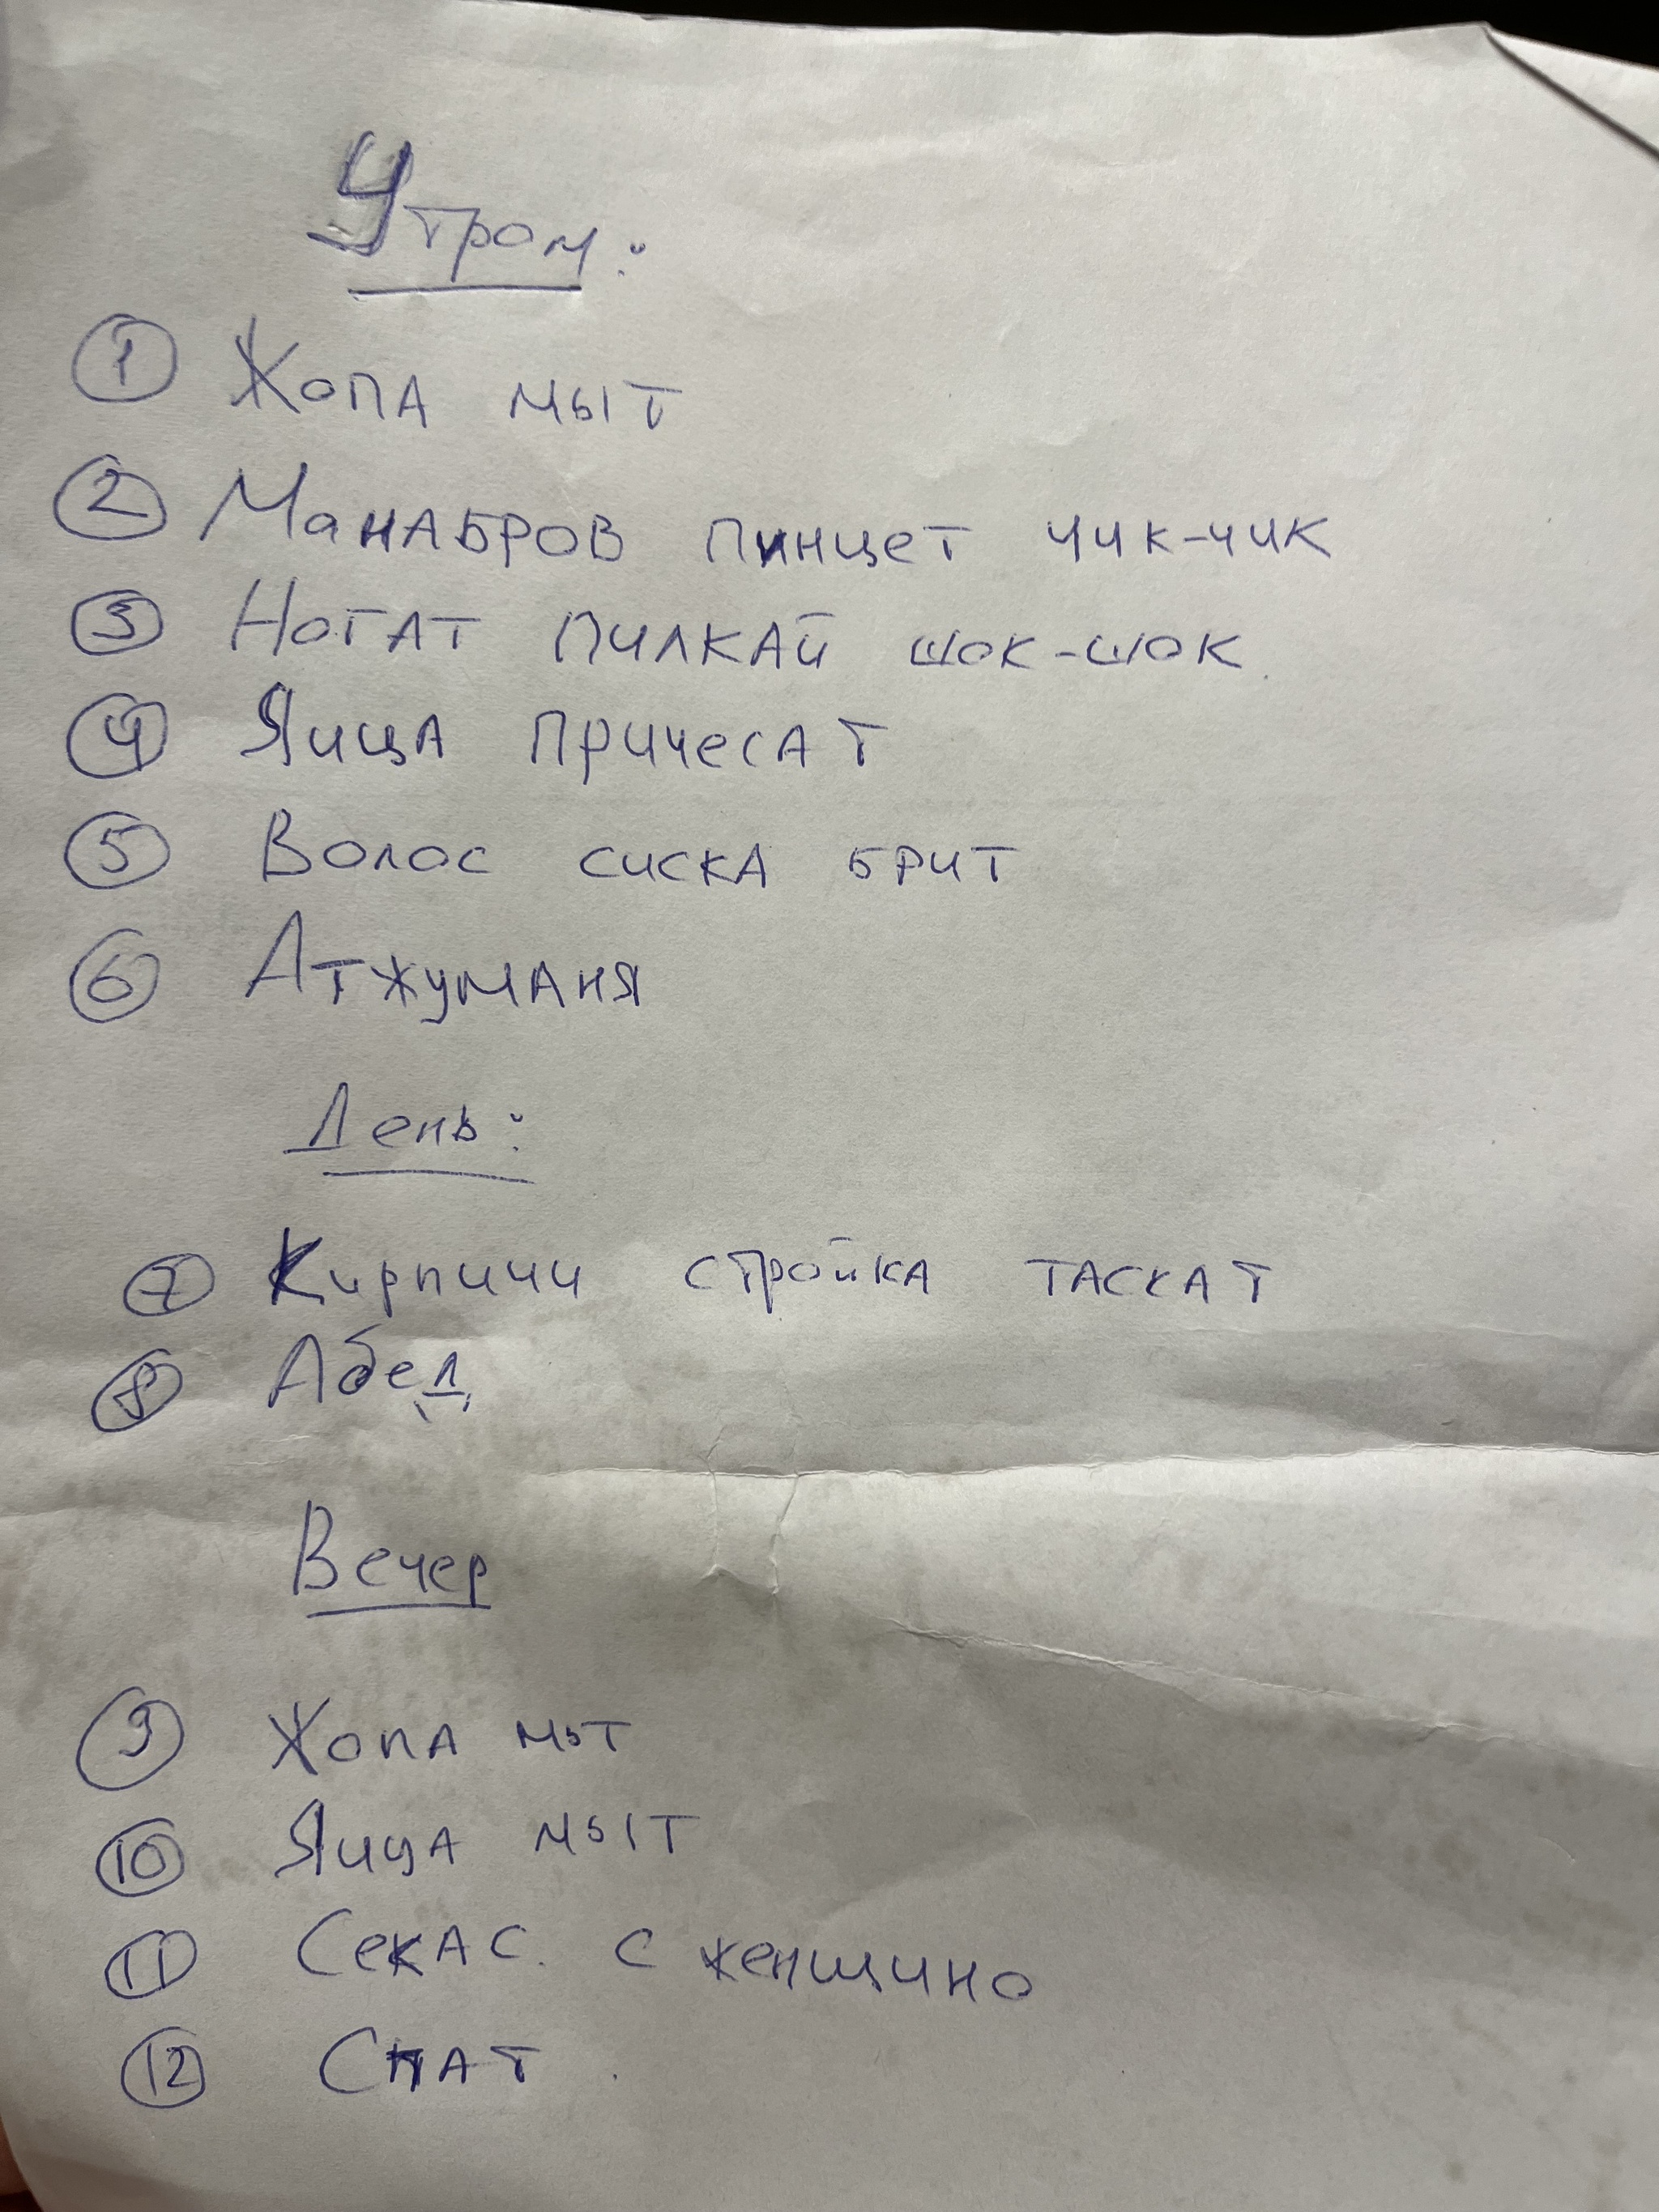 Утром:
1 Жопа мыт
2 МанАБРОВ пинцет чик-чик
3 Ногат пилкай шок-шок
4 Яица причесат
5 Волос сиска брит
6 Атжуманя
День:
7 Кирпичи стройка таскат
8 Абед
Вечер
9 Жопа мыт
10 Яица мыт
11 Секас. с женщино
12 Спат.